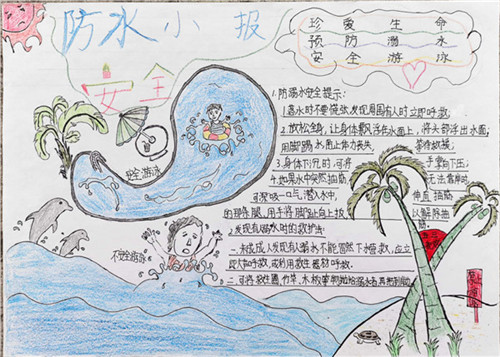 防水小报
安全
珍爱生命
预防溺水
安全游泳
1.防溺水安全提示:
1.落水时不要慌张,发现周围有人时立即呼救,
2.放松全身,让身体飘浮在水面上,将头部浮出水面,
用脚踢水,防止体力丧失, 等待救援,
3.身体下沉时,可将 手掌向下压;
4.如果水中突然抽筋, 无法靠岸时
可深吸一口气,潜入水中, 伸直抽筋
的那条腿,用手将脚趾向上扳, 以解除抽筋
2.发现有溺水时的救护法:
一,未成
人发现有人溺水不能冒然下水营救,应立
即大如呼救,或利用救生器材呼救.
二.可将救生圈、竹竿、木板等抛给溺水者,再将其拖
安全游泳
不安全游泳